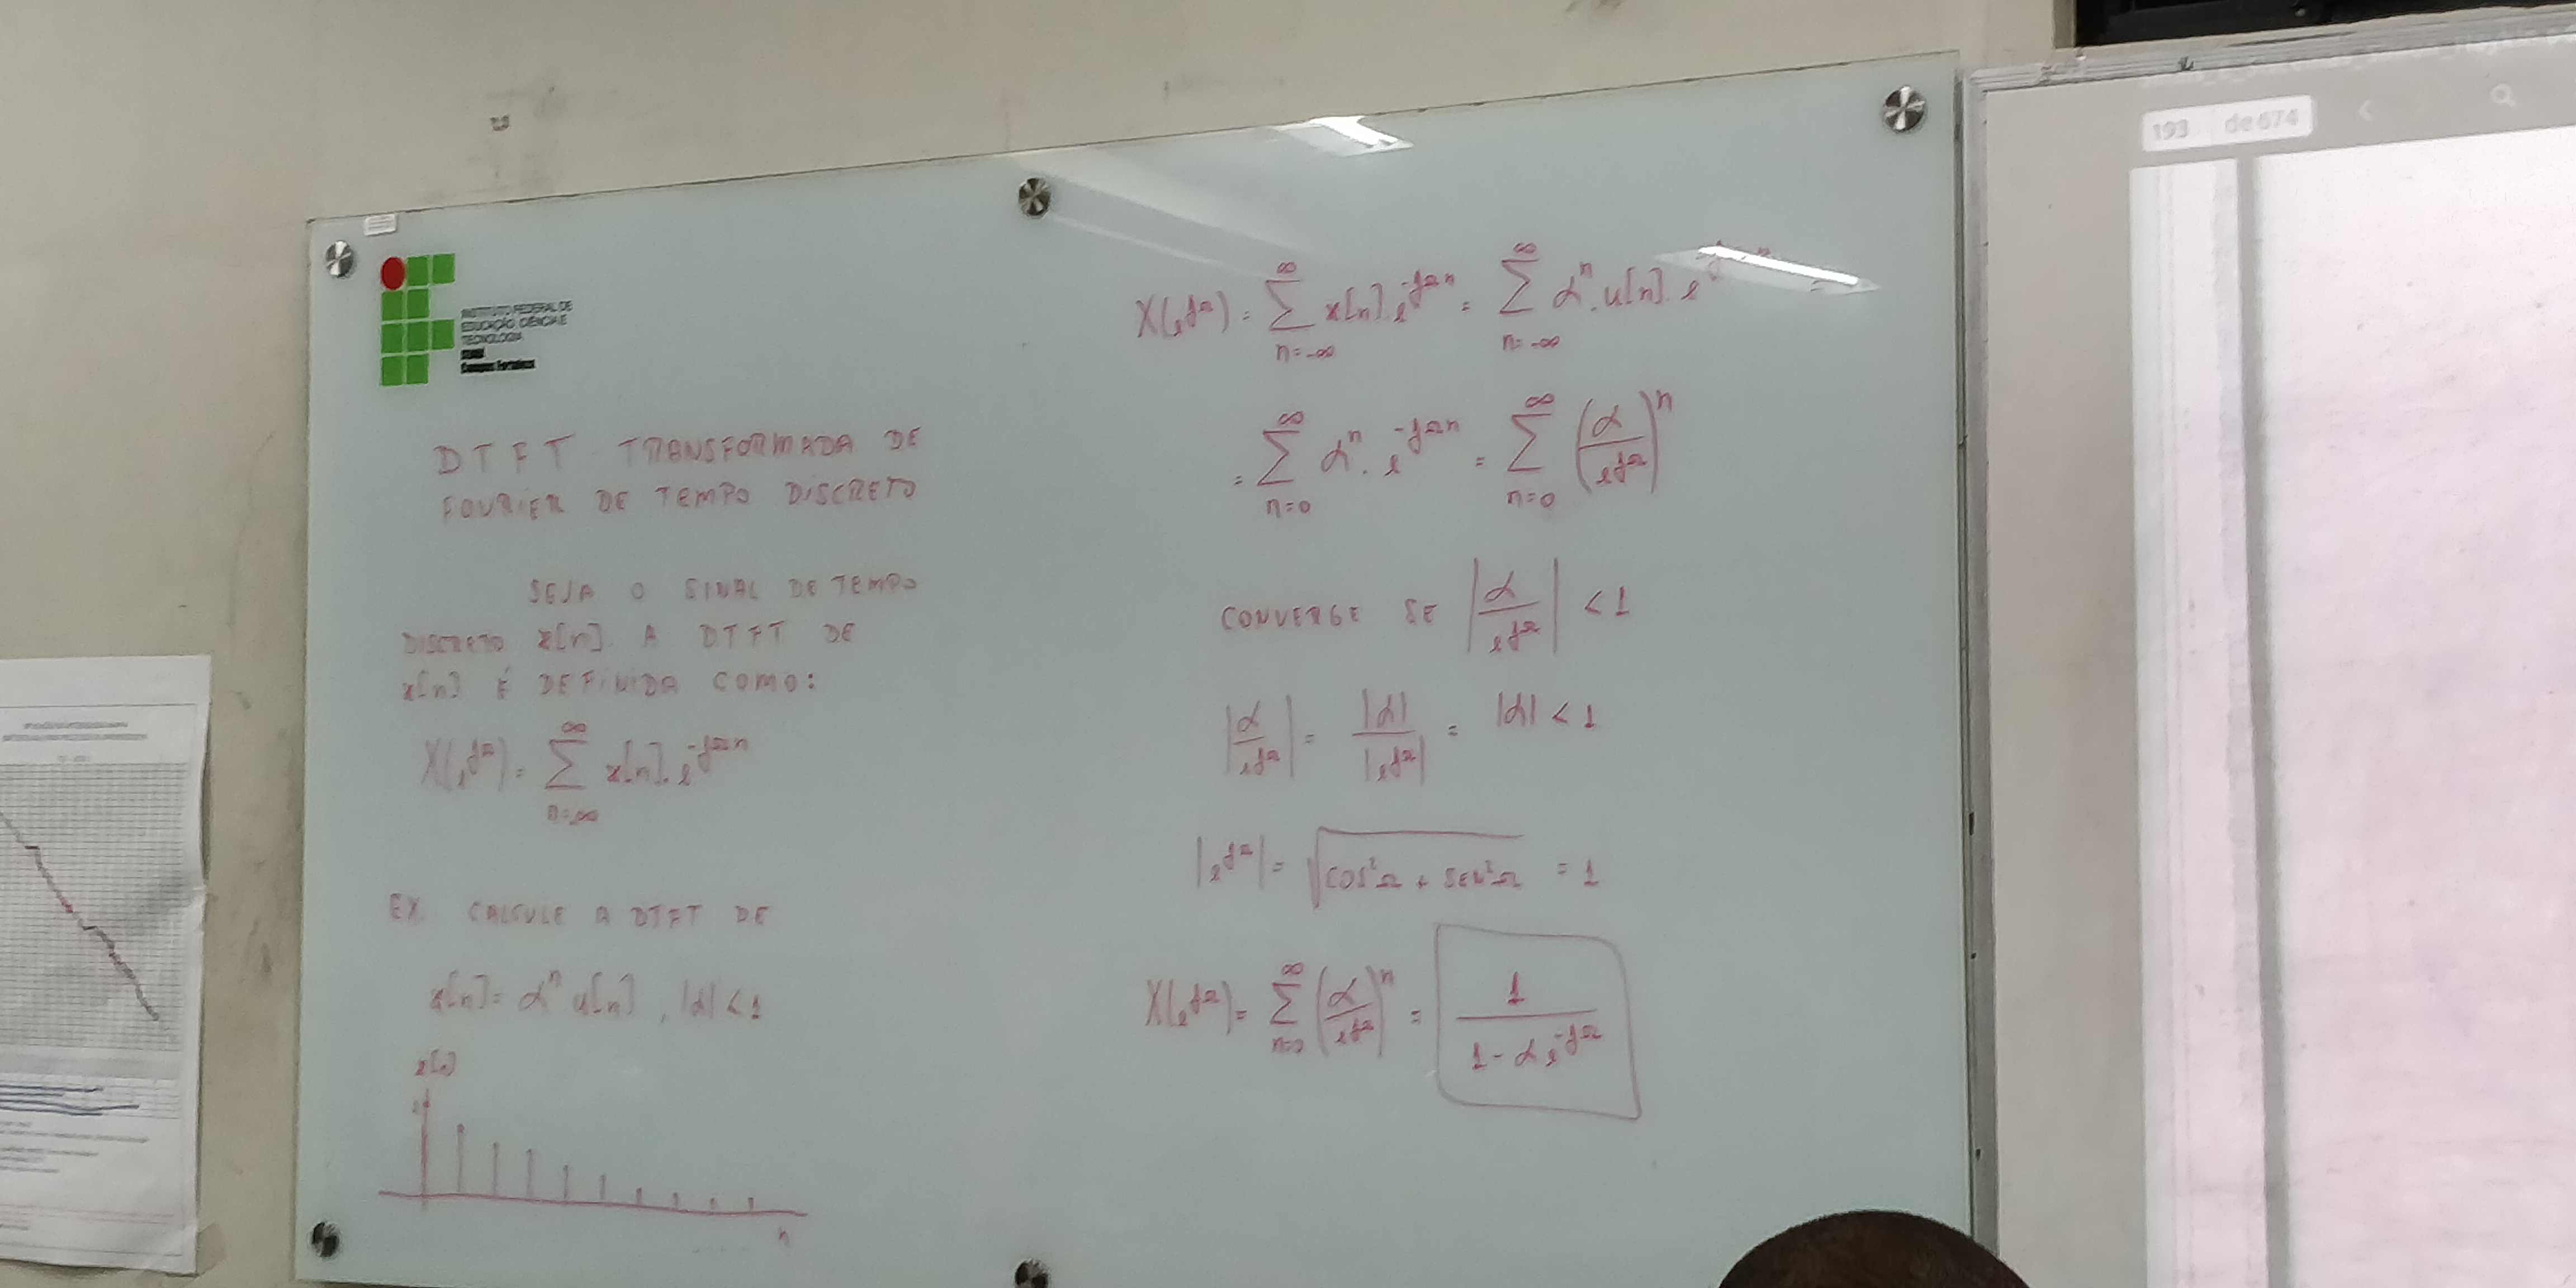 INSTITUTO FEDERAL DE
EDUCAÇÃO, CIÊNCIA E
TECNOLOGIA
CEARÁ
Campus Fortaleza
DTFT TRANSFORMADA DE
FOURIER DE TEMPO DISCRETO
SEJA O SINAL DE TEMPO
DISCRETO x[n]. A DTFT DE
x[n] É DEFINIDA COMO:
X(e^{jΩ}) = ∑_{n=-∞}^{∞} x[n]. e^{-jΩn}
EX. CALCULE A DTFT DE
x[n] = α^n u[n], |α| < 1
x[n]
1
n
X(e^{jΩ}) = ∑_{n=-∞}^{∞} x[n]. e^{-jΩn} = ∑_{n=-∞}^{∞} α^n. u[n]. e^{-jΩn} =
= ∑_{n=0}^{∞} α^n. e^{-jΩn} = ∑_{n=0}^{∞} (α/e^{jΩ})^n
CONVERGE SE |α/e^{jΩ}| < 1
|α/e^{jΩ}| = |α|/|e^{jΩ}| = |α| < 1
|e^{jΩ}| = √(COS²Ω + SEN²Ω) = 1
X(e^{jΩ}) = ∑_{n=0}^{∞} (α/e^{jΩ})^n = 1/(1 - α e^{-jΩ})
193 de 674